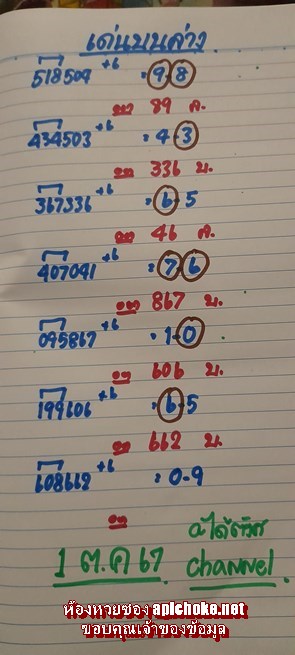 เด่นบนล่าง
518504 +6 = 9-8
ออก 89 ล.
434503 +6 = 4-3
ออก 336 บ.
367336 +6 = 6-5
ออก 46 ล.
407041 +6 = 7-6
ออก 867 บ.
095867 +6 = 1-0
ออก 606 บ.
199606 +6 = 6-5
ออก 662 บ.
608662 +6 = 0-9
ออก
1 ต.ค 67
channel
ห้องหวยซอง aplchoke.net
ขอบคุณเจ้าของข้อมูล